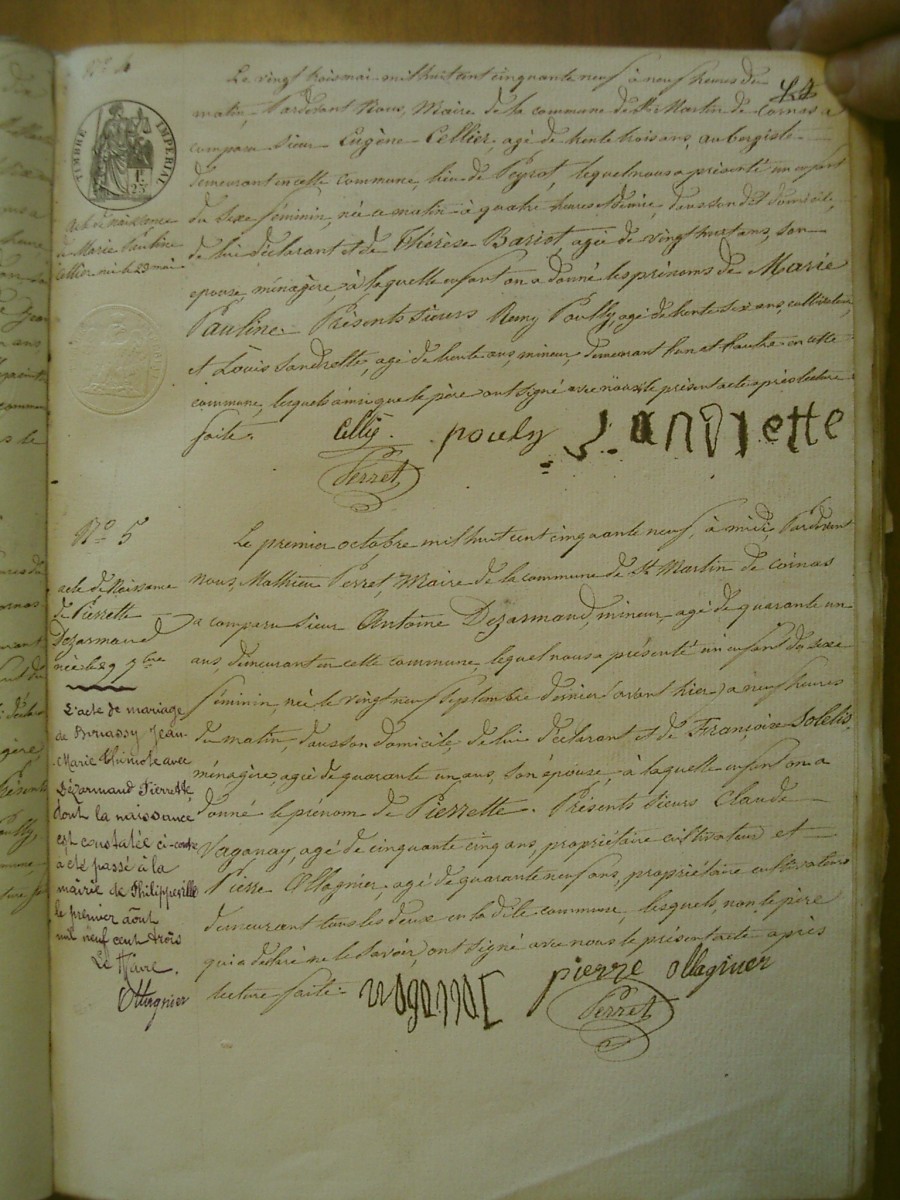 N° 4
Le vingt trois mai mil huit cent cinquante neuf à neuf heures du
matin, Pardevant Nous, Maire de la commune de St Martin de Cornas a
comparu sieur Eugène Cellier, agé de trente trois ans, aubergiste
demeurant en cette commune, lieu de Peyrot, lequel nous a présenté un enfant
du sexe féminin, née ce matin à quatre heures et demie, dans son dit domicile,
de lui déclarant et de Thérèse Bariot, agée de vingt huit ans, son
epouse, ménagère, à laquelle enfant on a donné les prénoms de Marie
Pauline. Présents sieurs Remy Poully, agé de trente six ans, cultivateur,
et Louis Sandrette, agé de trente ans, mineur, demeurant l'un et l'autre en cette
commune, lesquels ainsi que le père ont signé avec nous le présent acte après lecture
faite.
TIMBRE IMPERIAL
1 F.
25 C
acte de naissance
de Marie Pauline
Cellier née le 23 mai
pouly
Perret
N° 5
Le premier octobre mil huit cent cinquante neuf, à midi, Pardevant
nous, Mathieu Perret, Maire de la commune de St Martin de cornas
a comparu sieur Antoine Dezarmaud, mineur, agé de quarante un
ans, demeurant en cette commune lequel nous a présenté un enfant du sexe
féminin, née le vingt neuf septembre dernier (avant hier) à neuf heures
du matin, dans son domicile, de lui déclarant et de Françoise
ménagère, agée de quarante un ans, son épouse, à laquelle enfant on a
donné le prénom de Pierrette. Présents sieurs Claude
Vaganay, agé de cinquante cinq ans, propriétaire cultivateur et
Pierre Ollagnier, agé de quarante neuf ans, propriétaire cultivateur
demeurant tous les deux en la dite commune, lesquels, non le père
qui a déclaré ne le savoir, ont signé avec nous le présent acte après
lecture faite.
acte de Naissance
de Pierrette
Dezarmaud
née le 29 7bre
L'acte de mariage
de Jean
Marie avec
Dézarmaud Pierrette,
dont la naissance
est constatée ci-contre
a été passé à la
mairie de Philippeville
le premier août
mil neuf cent trois
Le Maire,
Ollagnier
pierre ollagnier
Perret